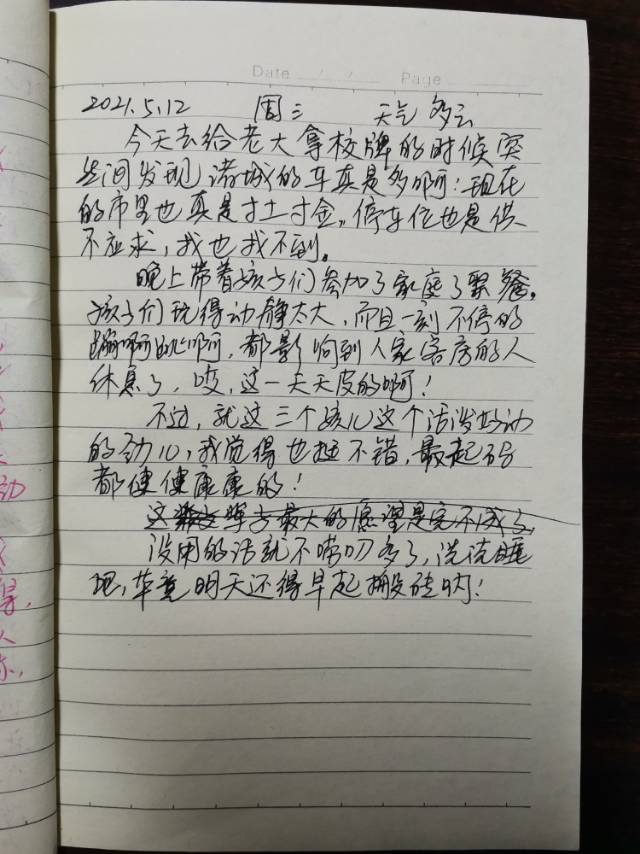 Date / / Page
2021.5.12 周三 天气 多云
今天去给老大拿校牌的时候突
然间发现诸城的车真是多啊!现在
的市里也真是寸土寸金。停车位也是供
不应求,我也找不到。
晚上带着孩子们参加了家庭了聚餐。
孩子们玩得动静太大,而且一刻不停的
蹦啊跳啊,都影响到人家客房的人
休息了,哎,这一天天皮的啊!
不过,就这三个孩儿这个活泼好动
的劲儿,我觉得也挺不错,最起码
都健健康康的!
这辈子最大的愿望是完不成了,
没用的话就不唠叨多了,洗洗睡
吧,毕竟明天还得早起搬砖呐!